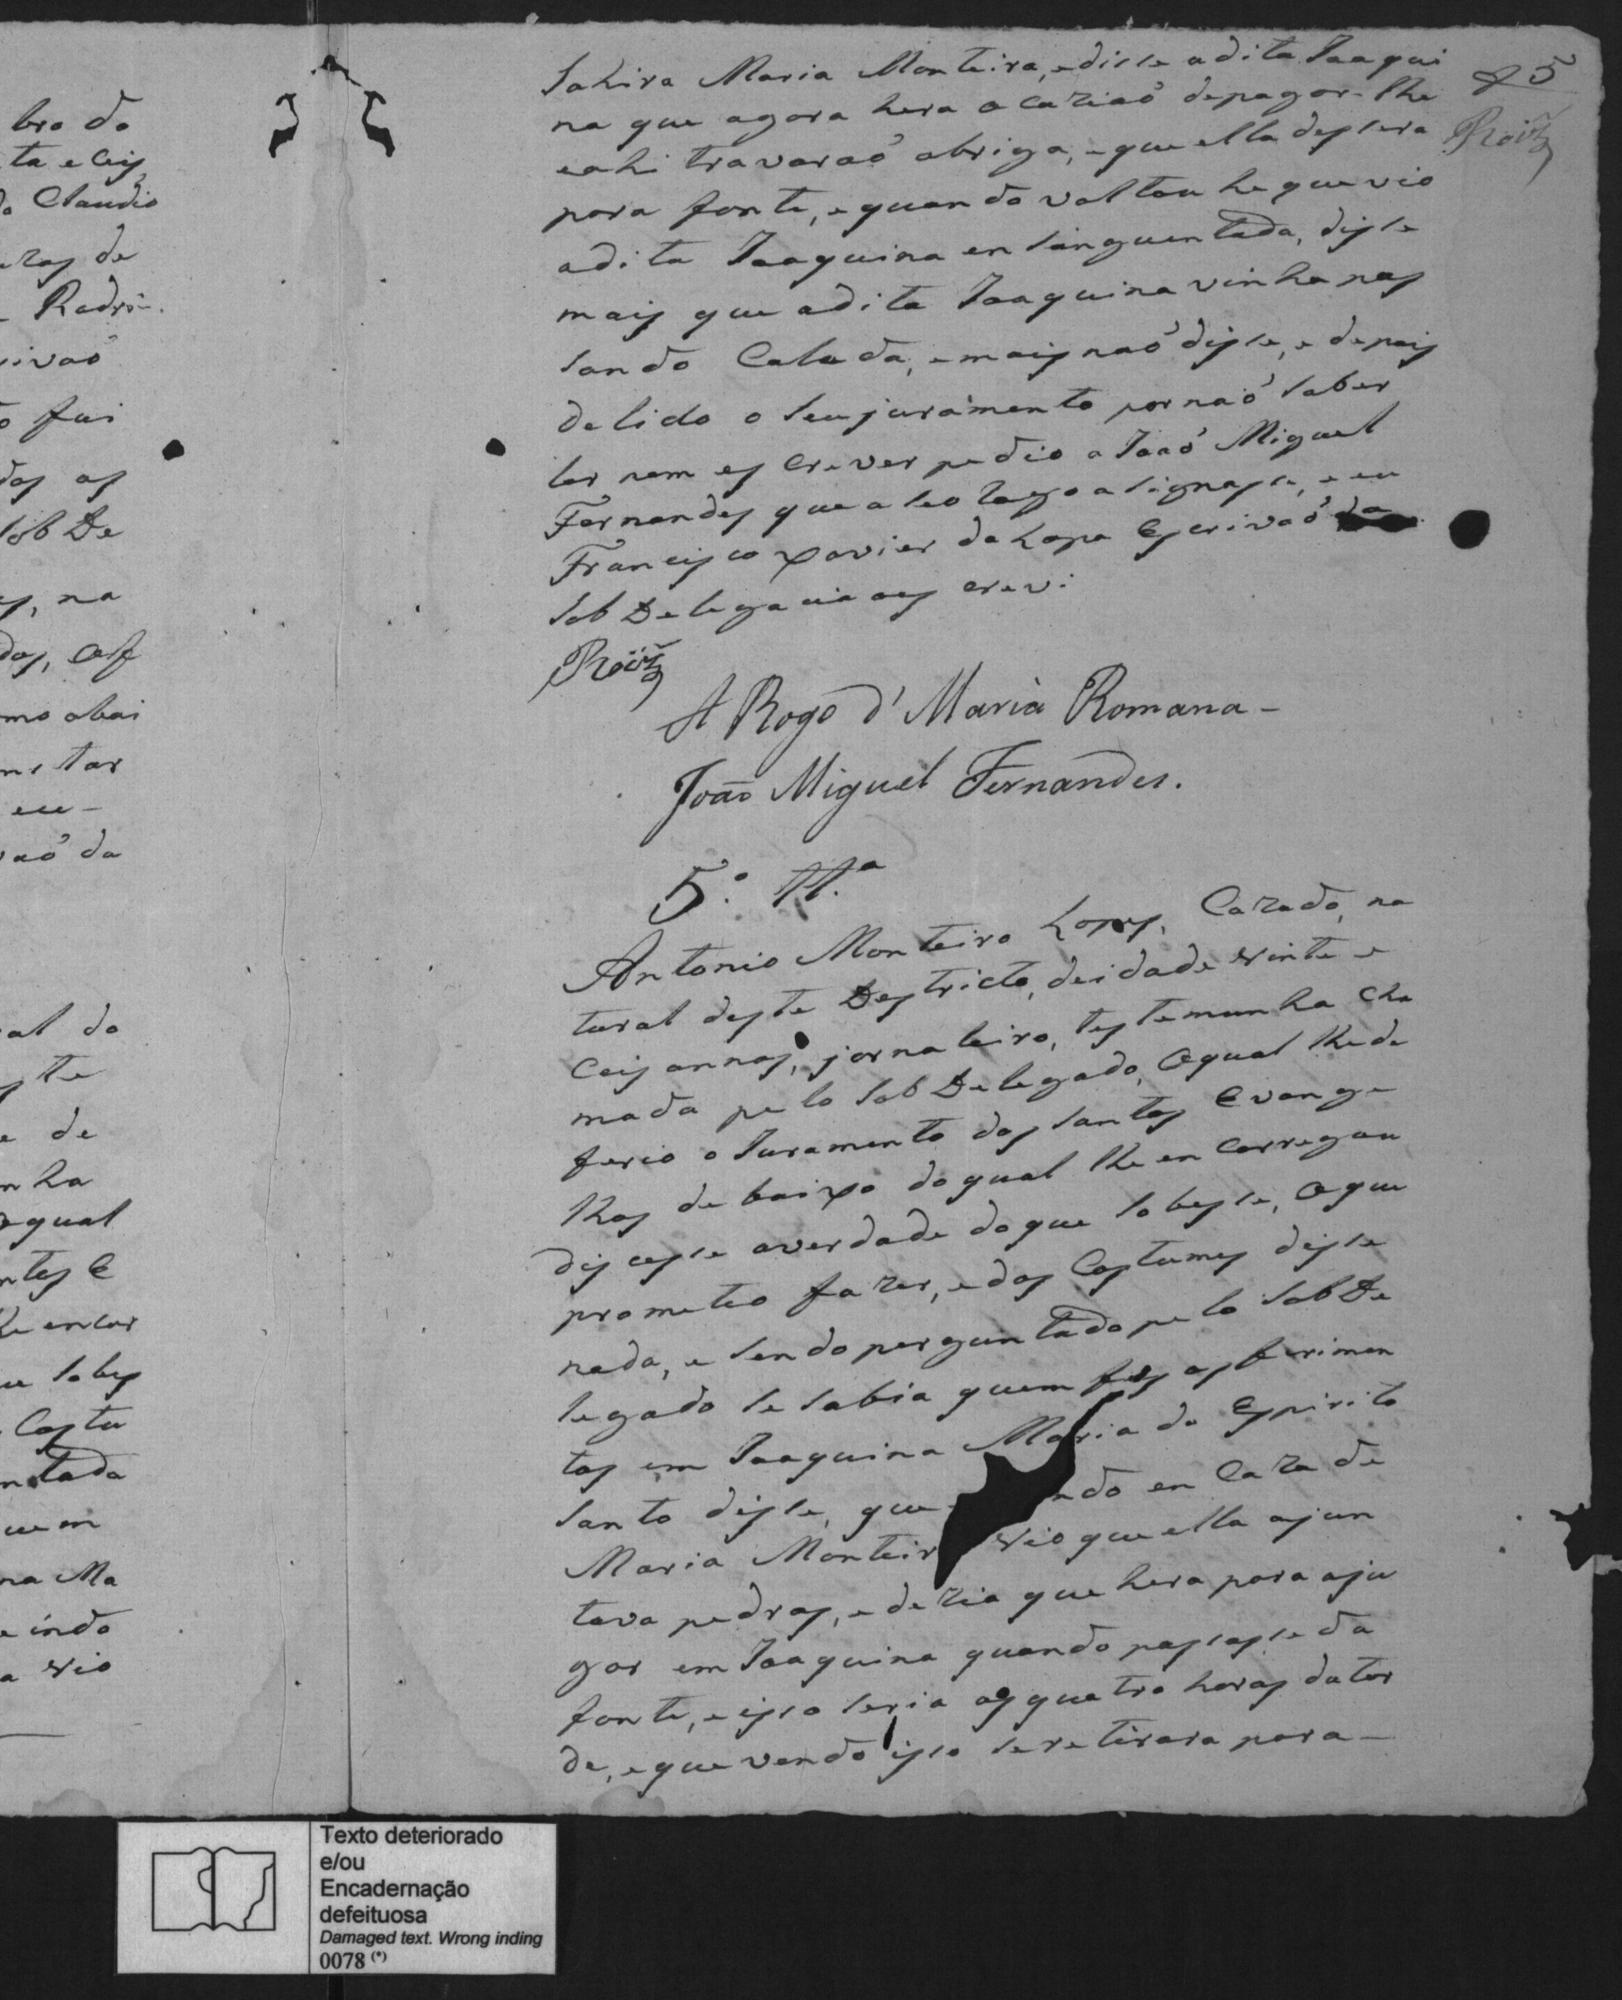 bro do
ta e Ceis
do Claudio
eras de
Rodri-
ivaõ
o fui
dos as
sob De
s, na
dos, Caf
mo abai
ns tar
eu-
vaõ da
al do
s te
e de
nha
oqual
ntos E
lhe encar
ue sobes
Costu
ntada
uem
na Ma
e indo
a vio
25
Roiz
Sahira Maria Monteira, e disse adita Joaqui
na que agora hera ocaziaõ depagar-lhe
eahi travaraõ abriga, e que ella dessera
para fonte, e quando voltou he que vio
adita Joaquina ensanguentada, disse
mais que adita Joaquina vinha pas
sando Calada, e mais naõ disse, e depois
de lido o seu juramento por naõ saber
ler nem escrever pedio a Joaõ Miguel
Fernandes que a seo rogo asignasse, e eu
Francisco Xavier da Lapa Escrivaõ da
SobDelegacia oes crevi
Roiz
A Rogo d' Maria Romana-
João Miguel Fernandes.
5.º TT.ª
Antonio Monteiro Lopes, Cazado, na
tural deste Destricto, deidade vinte e
Ceis annos, jornaleiro, testemunha cha
mada pelo SobDelegado, oqual lhe de
ferio o Juramento dos Santos Evange
lhos debaixo doqual lhe encarregou
discesse averdade doque sobesse, oque
prometeo fazer, e dos Costumes disse
nada, e sendo perguntado pelo SobDe
legado se sabia quem fes os ferimen
tos em Joaquina Maria do Espirito
Santo disse, que ndo en Caza de
Maria Monteir vio que ella ajun
tava pedras, e dezia que hera para aju
gar em Joaquina quando passasse da
fonte, e isso seria as quatro horas datar
de, e que vendo isso se retirara para-
Texto deteriorado
e/ou
Encadernação
defeituosa
Damaged text. Wrong inding
0078 (*)